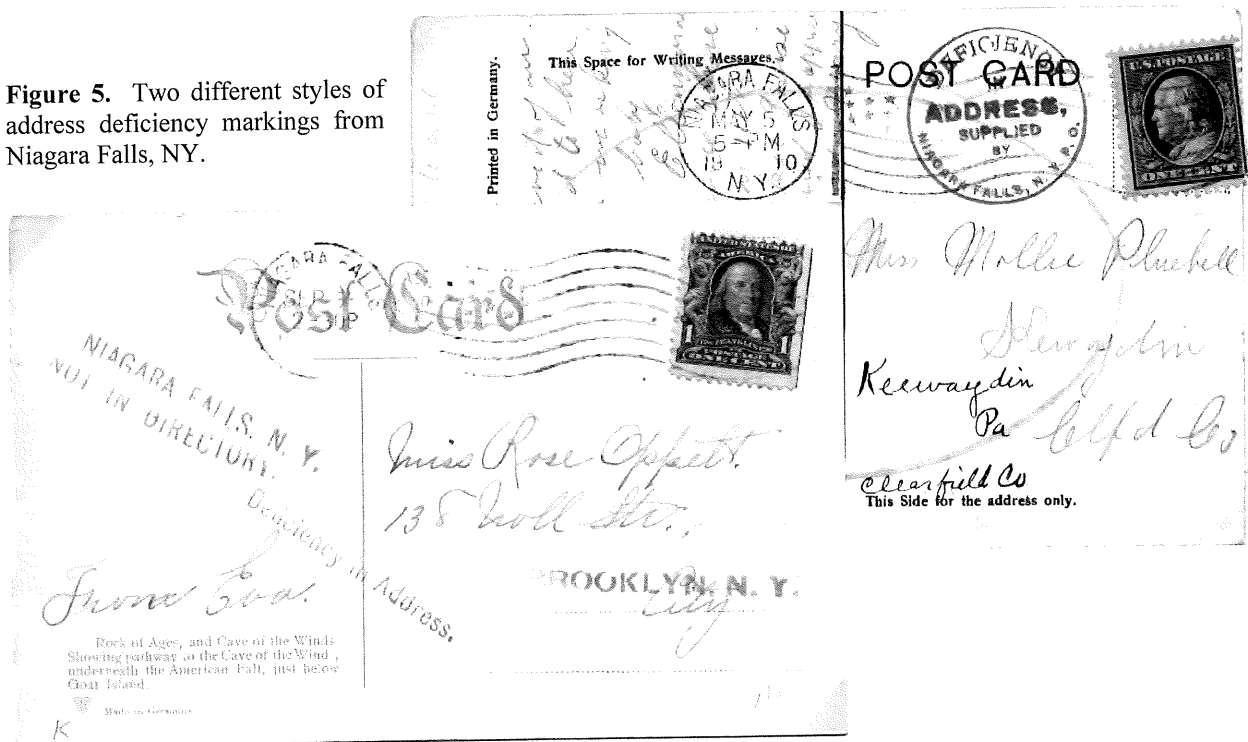 Figure 5. Two different styles of
address deficiency markings from
Niagara Falls, NY.
Printed in Germany.
This Space for Writing Messages.
NIAGARA FALLS
MAY 5
5-PM
19 10
N.Y.
POST CARD
DEFICIENCY
IN
ADDRESS,
SUPPLIED
BY
NIAGARA FALLS, N. Y. P. O.
U.S. POSTAGE
ONE CENT
Miss Mollie
Keewaydin
Pa
Clfd Co
Clearfield Co
This Side for the address only.
Post Card
AGARA FALLS
SEP
1
1
NIAGARA FALLS, N. Y.
NOT IN DIRECTORY.
Deficiency in Address.
Miss Rose
138 Noll Str.,
BROOKLYN. N. Y.
City
From Eva.
Rock of Ages, and Cave of the Winds
Showing pathway to the Cave of the Wind,
underneath the American Fall, just below
Goat Island.
Made in Germany
K